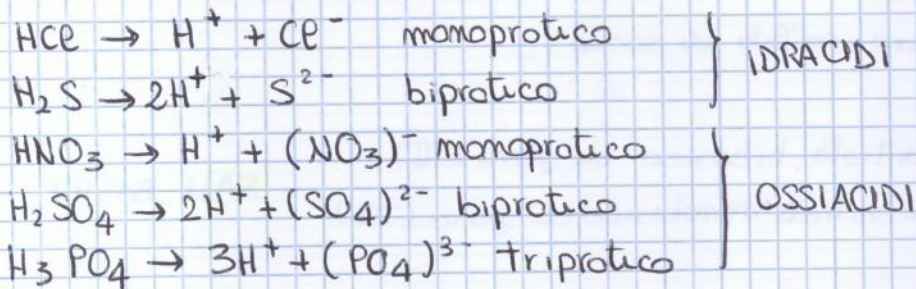 HCl → H⁺ + Cl⁻ monoprotico
H₂S → 2H⁺ + S²⁻ biprotico
IDRACIDI
HNO₃ → H⁺ + (NO₃)⁻ monoprotico
H₂SO₄ → 2H⁺ + (SO₄)²⁻ biprotico
H₃PO₄ → 3H⁺ + (PO₄)³⁻ triprotico
OSSIACIDI